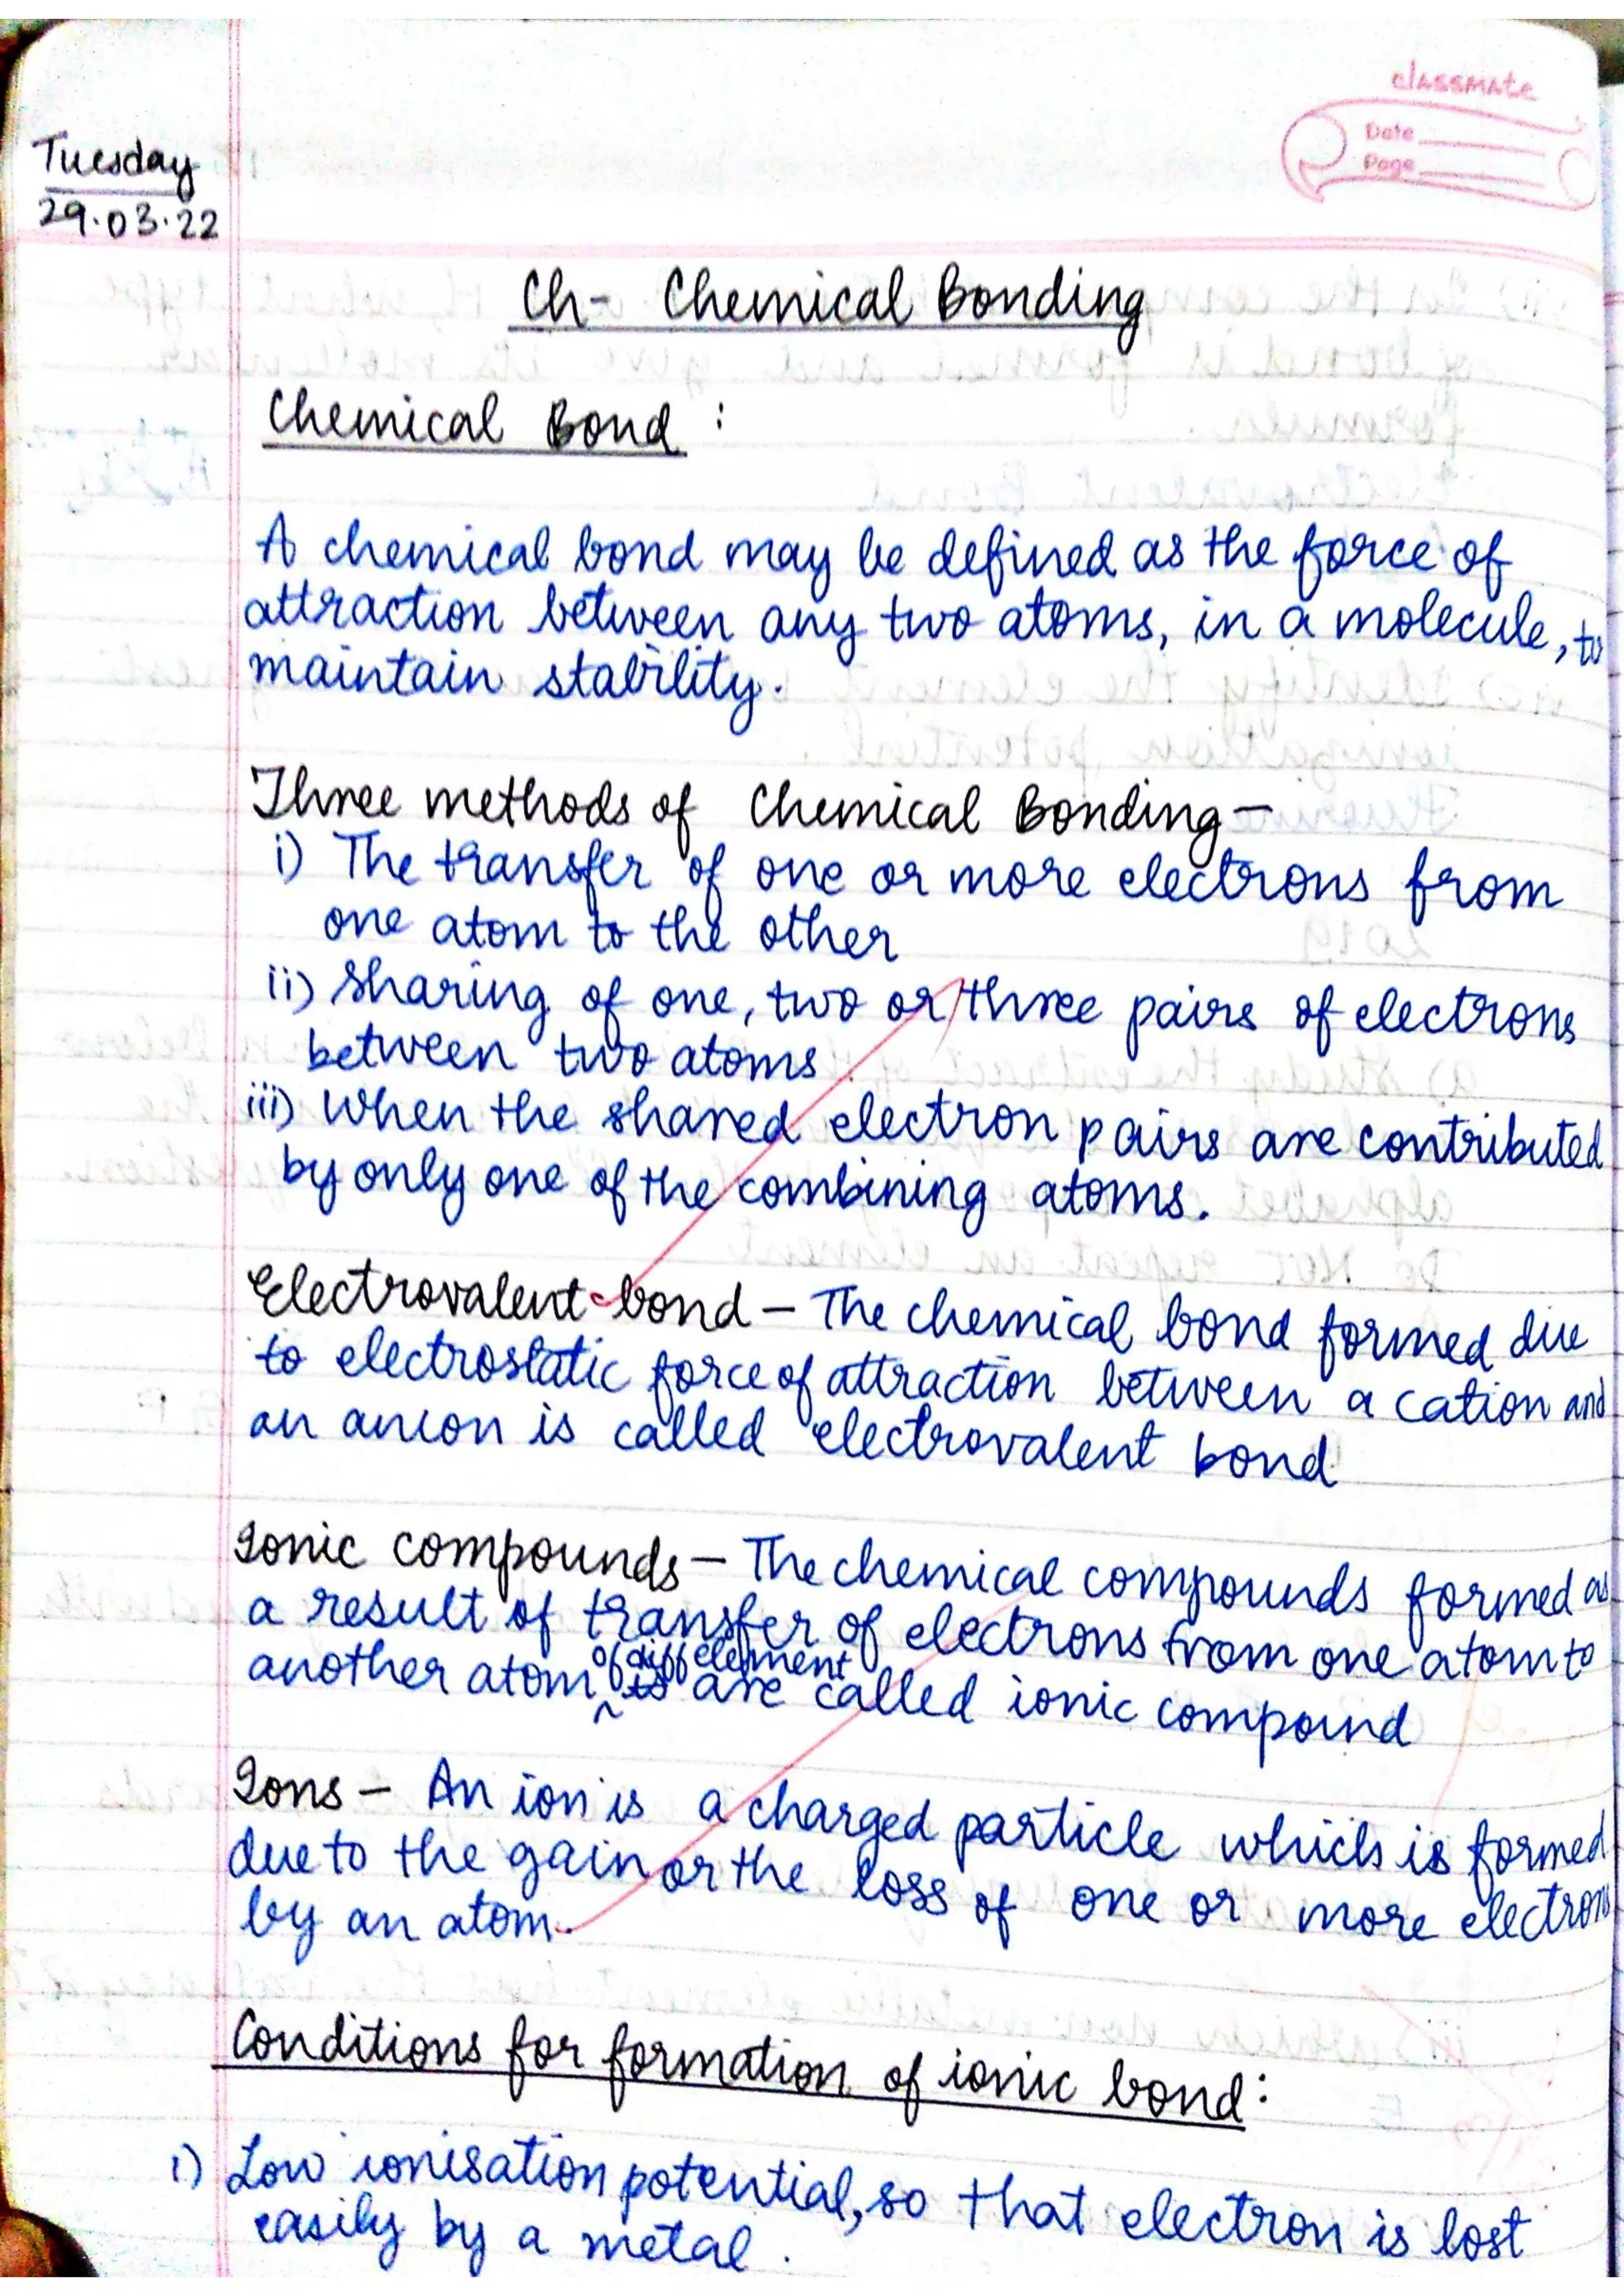 classmate
Date
Page
Tuesday
29.03.22
Ch- Chemical Bonding
Chemical Bond :
A chemical bond may be defined as the force of
attraction between any two atoms, in a molecule, to
maintain stability.
Three methods of Chemical Bonding-
i) The transfer of one or more electrons from
one atom to the other
ii) Sharing of one, two or three pairs of electrons
between two atoms
iii) When the shared electron pairs are contributed
by only one of the combining atoms.
Electrovalent bond - The chemical bond formed due
to electrostatic force of attraction between a cation and
an anion is called electrovalent bond
Ionic compounds - The chemical compounds formed as
a result of transfer of electrons from one atom to
of diff element
another atom are called ionic compound
Ions - An ion is a charged particle which is formed
due to the gain or the loss of one or more electrons
by an atom.
Conditions for formation of ionic bond:
i) Low ionisation potential, so that electron is lost
easily by a metal.